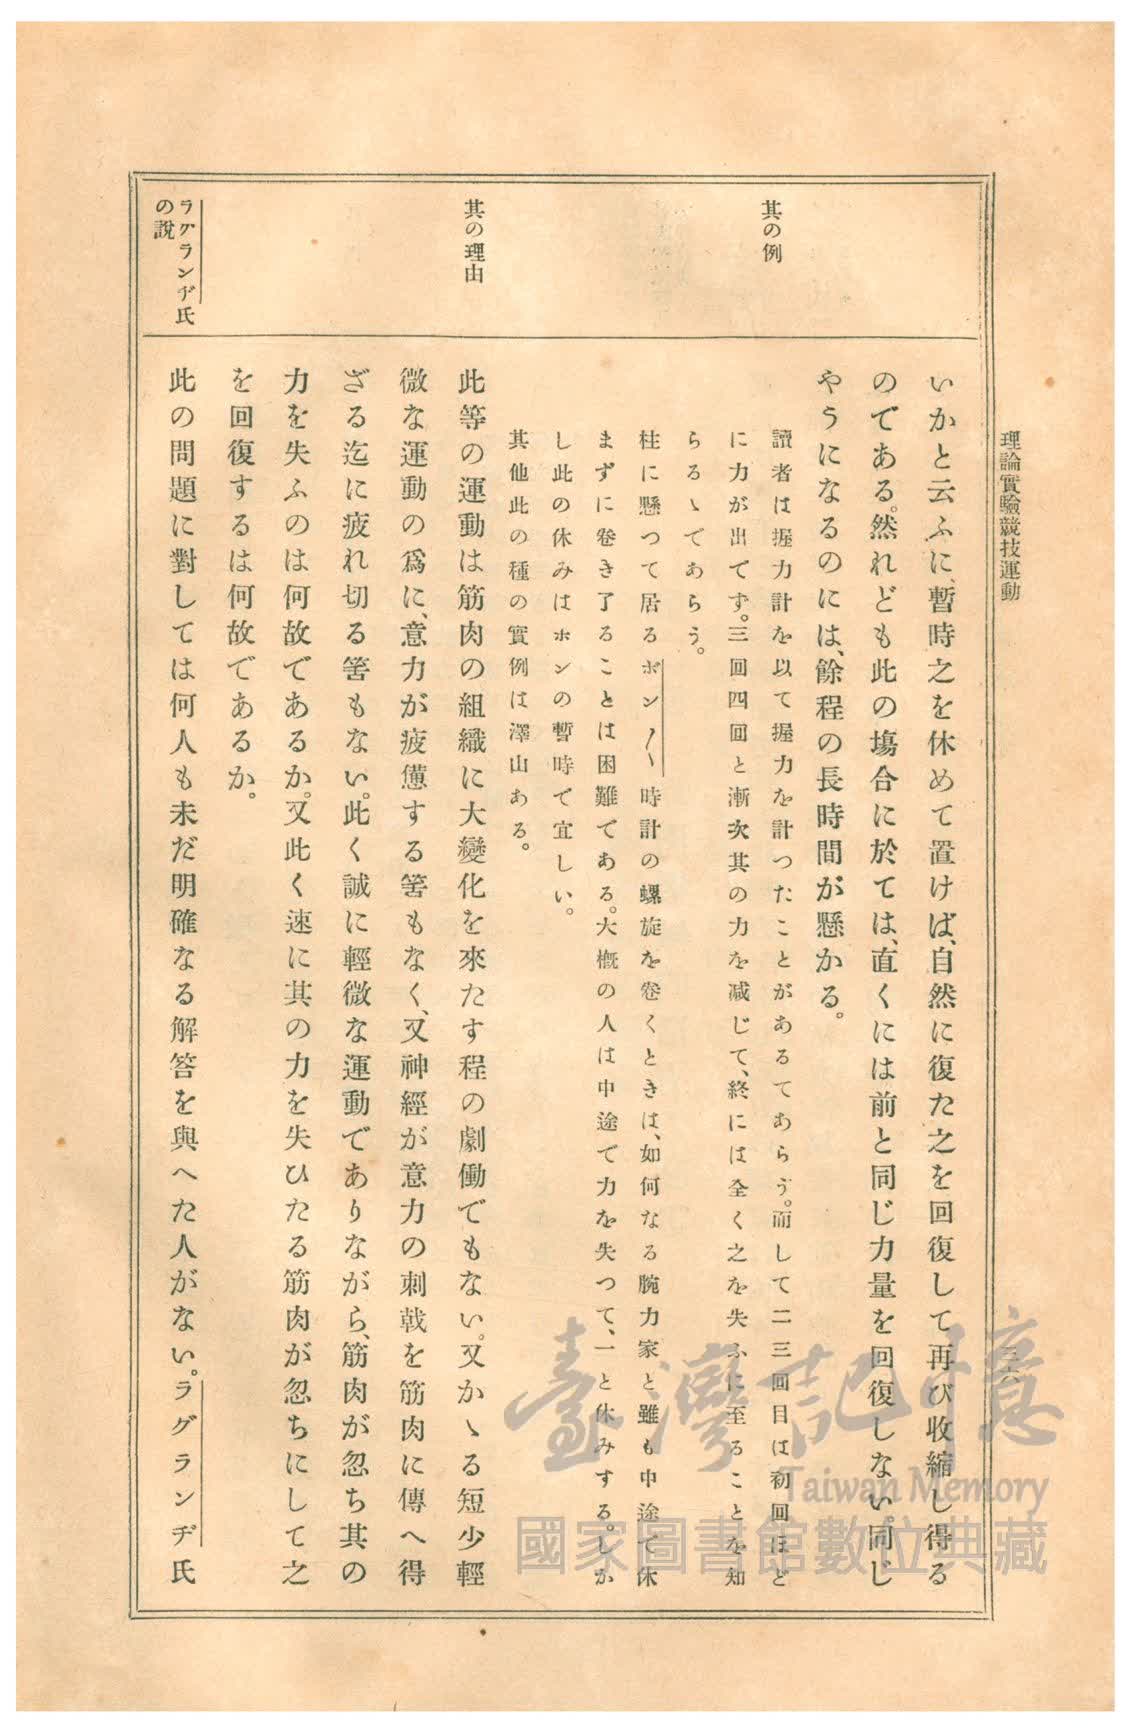 理論實驗競技運動
三六
いかと云ふに、暫時之を休めて置けば、自然に復た之を回復して再び收縮し得る
のである。然れども此の塲合に於ては、直くには前と同じ力量を回復しない。同じ
やうになるのには、餘程の長時間が懸かる。
其の例
讀者は握力計を以て握力を計つたことがあるてあらう。而して二三回目は初回ほど
に力が出でず。三回四回と漸次其の力を減じて、終には全く之を失ふに至ることを知
らるゝであらう。
柱に懸つて居るボン〳〵時計の螺旋を卷くときは、如何なる腕力家と雖も中途て休
まずに卷き了ることは困難である。大概の人は中途で力を失つて、一と休みする。しか
し此の休みはホンの暫時で宜しい。
其他此の種の實例は澤山ある。
其の理由
此等の運動は筋肉の組織に大變化を來たす程の劇働でもない。又かゝる短少輕
微な運動の爲に、意力が疲憊する筈もなく、又神經が意力の刺戟を筋肉に傳へ得
ざる迄に疲れ切る筈もない。此く誠に輕微な運動でありながら、筋肉が忽ち其の
力を失ふのは何故であるか。又此く速に其の力を失ひたる筋肉が忽ちにして之
を回復するは何故であるか。
ラグランヂ氏
の說
此の問題に對しては何人も未だ明確なる解答を與へた人がない。ラグランヂ氏
臺灣記憶
Taiwan Memory
國家圖書館數位典藏